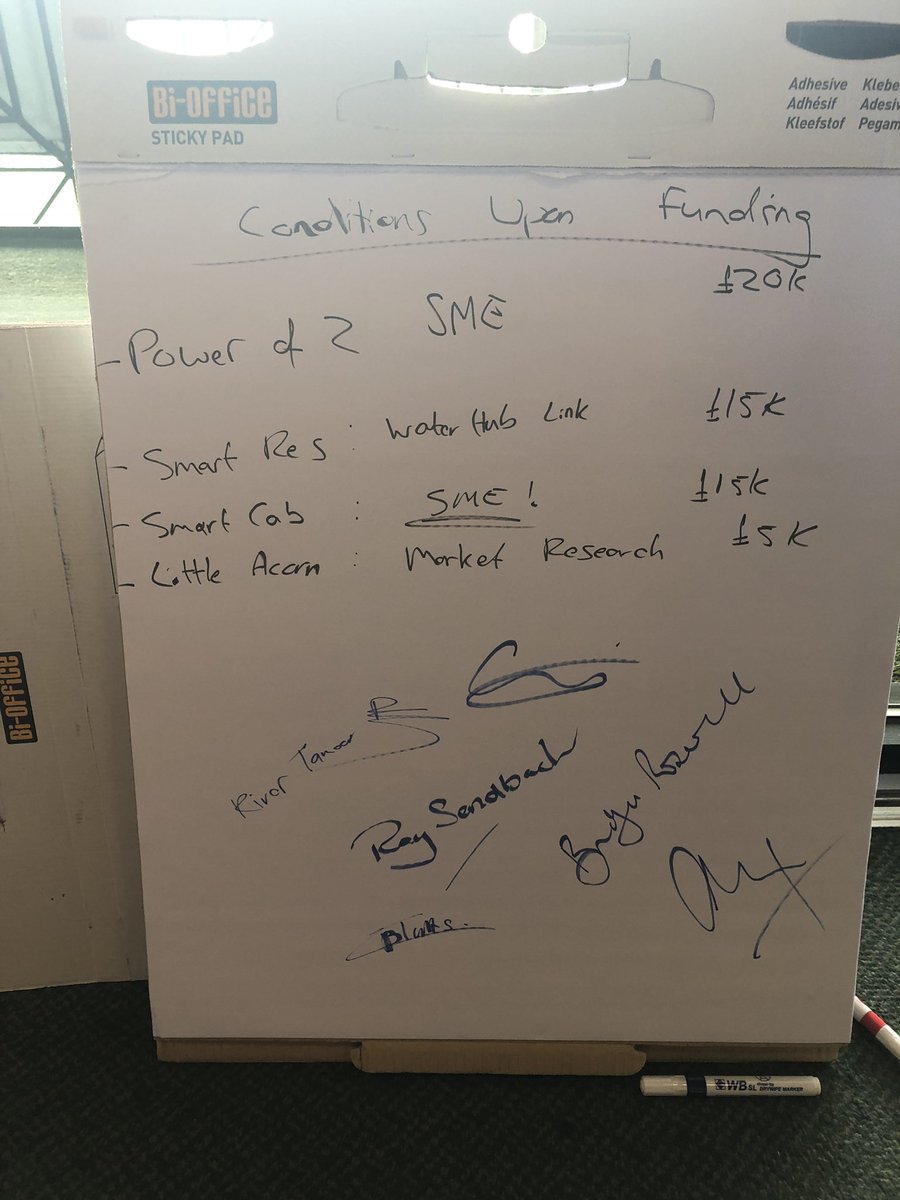 Bi-OFFiCE
STICKY PAD
Adhesive Klebe
Adhésif Adesiv
Kleefstof Pegam
Conditions Upon Funding
- Power of 2 SME £20k
- Smart Res : Water Hub Link £15k
- Smart Cab : SME! £15k
- Little Acorn : Market Research £5k
Bi-OFFiCE
River
Ray Sandbach
WB SL DRYWIPE MARKER